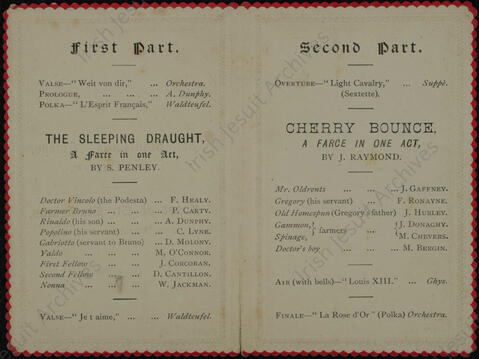 First Part.
VALSE—"Weit von dir," ... Orchestra.
PROLOGUE, ... ... A. Dunphy.
POLKA—"L'Esprit Français," Waldteufel.
THE SLEEPING DRAUGHT,
A Farce in one Act,
BY S. PENLEY.
Doctor Vincolo (the Podesta) ... F. HEALY.
Farmer Bruno ... ... P. CARTY.
Rinaldo (his son) ... ... A. DUNPHY.
Popolino (his servant) ... C. LYNE.
Gabriotto (servant to Bruno) D. MOLONY.
Yaldo ... ... M. O'CONNOR.
First Fellow ... ... J. CORCORAN.
Second Fellow ... ... D. CANTILLON.
Nonna ... ... W. JACKMAN.
VALSE—"Je t aime," ... Waldteufel.
Second Part.
OVERTURE—"Light Cavalry," ... Suppé.
(Sextette).
CHERRY BOUNCE,
A FARCE IN ONE ACT,
BY J. RAYMOND.
Mr. Oldrents ... ... ... J. GAFFNEY.
Gregory (his servant) ... F. RONAYNE.
Old Homespun (Gregory's father) J. HURLEY.
Gammon, } farmers ... { J. DONAGHY.
Spinage, } { M. CHEVERS.
Doctor's boy ... ... M. BERGIN.
AIR (with bells)—"Louis XIII." ... Ghys.
FINALE—"La Rose d'Or" (Polka) Orchestra.
Irish Jesuit Archives